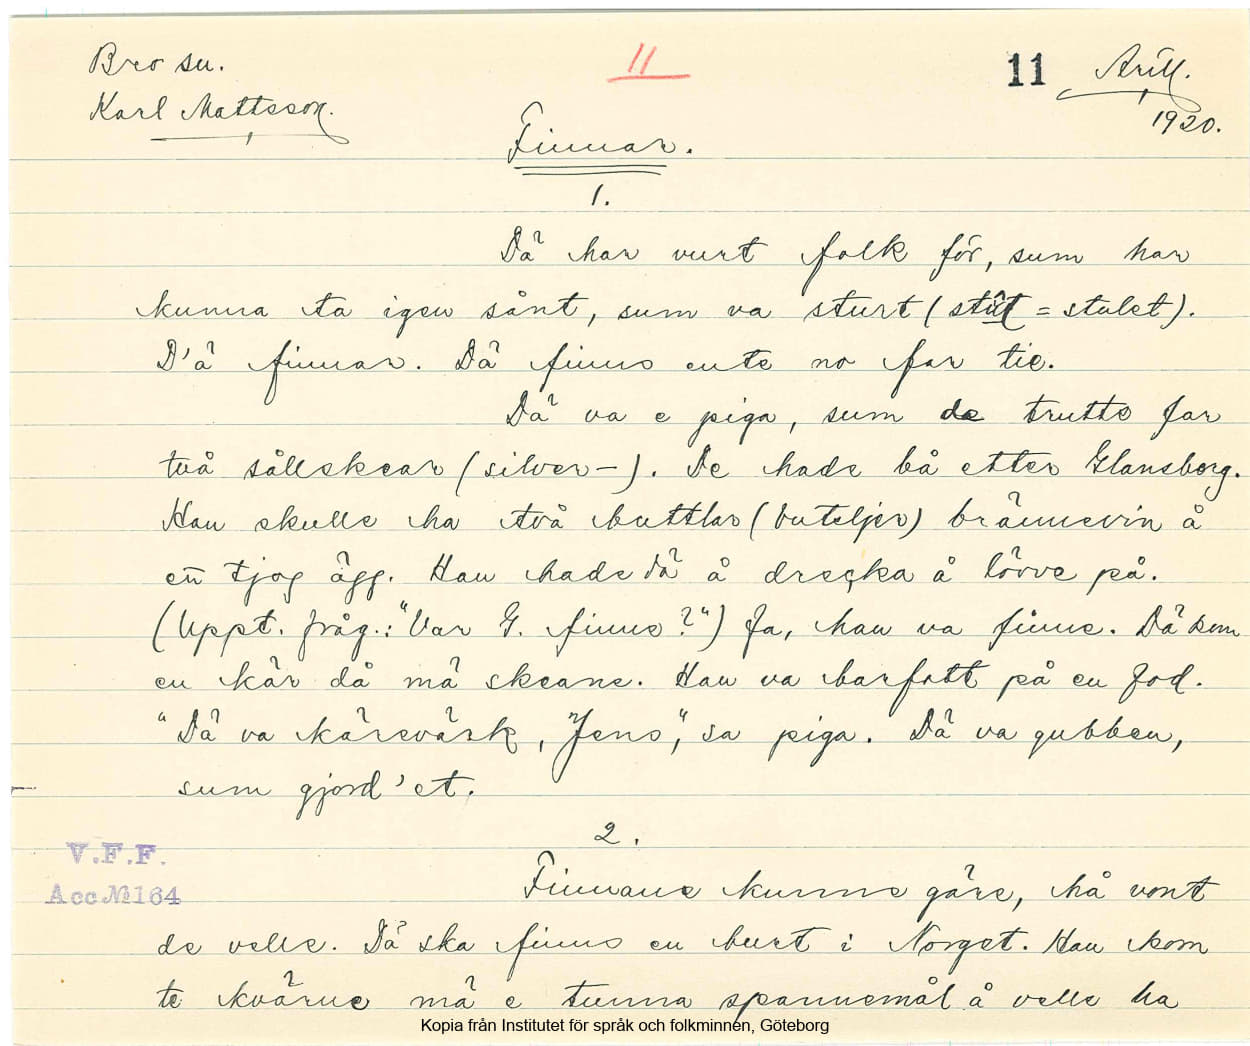 Bro sn.
11
11
Arill.
Karl Mattsson.
1920.
Finnar.
1.
Dä har vurt folk för, sum har
kunna ta igen sånt, sum va sturt (stût = stulet).
D'ä finnar. Dä finns ente no far tie.
Dä va e piga, sum de trutte far
två sållskear (silver-). De hade bå etter Glansberg.
Han skulle ha två buttlar (buteljer) brännevin å
en tjog ägg. Han hade dä å drecka å lövve på.
(Uppt. fråg.: "Var G. finne?") Ja, han va finne. Dä kom
en kär då mä skeane. Han va barfott på en fod.
"Dä va käreväsk, Jens", sa piga. Dä va gubben,
sum gjord'et.
2.
V.F.F.
Acc № 164
Finnane kunne gäre, hå vont
de velle. Dä ska finns en burt i Norget. Han kom
te kvärne mä e tunna spannemål å velle ha
Kopia från Institutet för språk och folkminnen, Göteborg